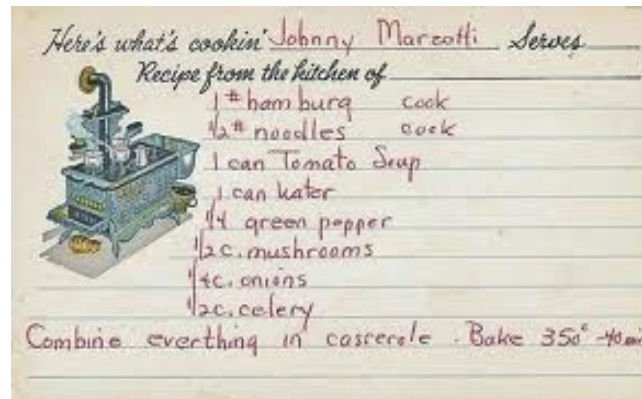 Here's what's cookin' Johnny Marzotti Serves
Recipe from the kitchen of
1 # hamburg cook
1/2 # noodles cook
1 can Tomato Soup
1 can water
1/4 green pepper
1/2 c. mushrooms
1/4 c. onions
1/2 c. celery
Combine everthing in casserole. Bake 350° - 40 min